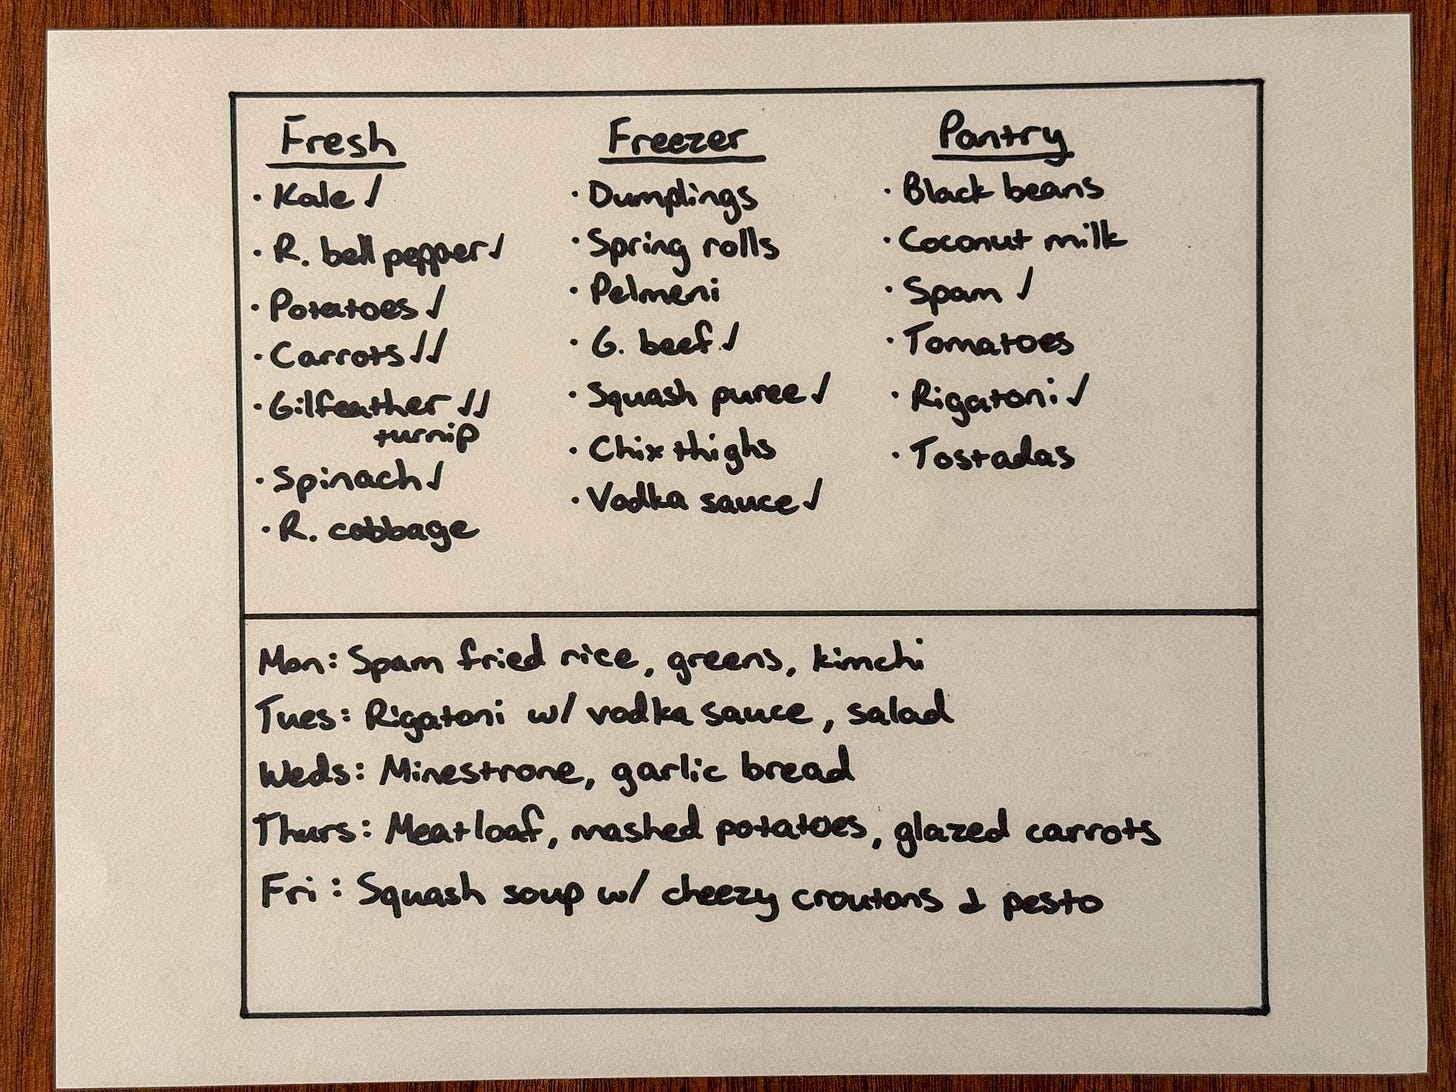 Fresh
· Kale ✓
· R. bell pepper ✓
· Potatoes ✓
· Carrots ✓✓
· Gilfeather ✓✓
turnip
· Spinach ✓
· R. cabbage
Freezer
· Dumplings
· Spring rolls
· Pelmeni
· G. beef ✓
· Squash puree ✓
· Chix thighs
· Vodka sauce ✓
Pantry
· Black beans
· Coconut milk
· Spam ✓
· Tomatoes
· Rigatoni ✓
· Tostadas
Mon: Spam fried rice, greens, kimchi
Tues: Rigatoni w/ vodka sauce, salad
Weds: Minestrone, garlic bread
Thurs: Meatloaf, mashed potatoes, glazed carrots
Fri: Squash soup w/ cheezy croutons & pesto